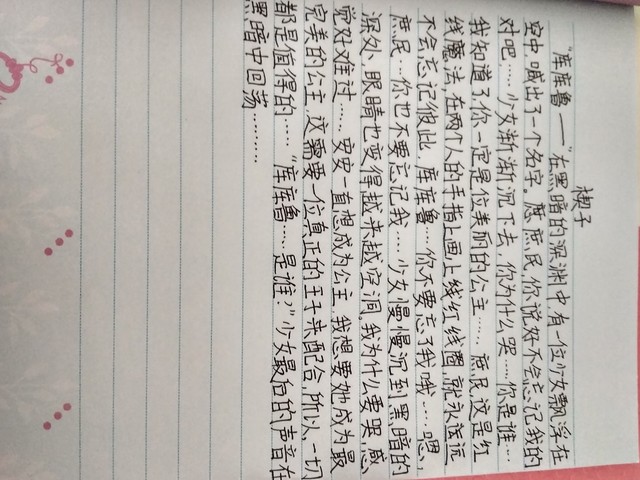 楔子
“库库鲁——”在黑暗的深渊中有一位少女飘浮在
空中,喊出了一个名字。庶庶民,你说好不会忘记我的
对吧……少女渐渐沉下去,你为什么哭……你是谁…
我知道了,你一定是位美丽的公主……庶民,这是红
线魔法,在两个人的手指上画上线红线圈,就永远远
不会忘记彼此 库库鲁…你不要忘了我哦……嗯,
庶民…你也不要忘记我……少女慢慢沉到黑暗的
深处,眼睛也变得越来越空洞,我为什么要哭,感
觉处难过……安安一直想成为公主,我想要她成为最
完美的公主,这需要一位真正的王子来配合,所以,一切
都是值得的……“库库鲁……是谁?”少女最后的声音在
黑暗中回荡………